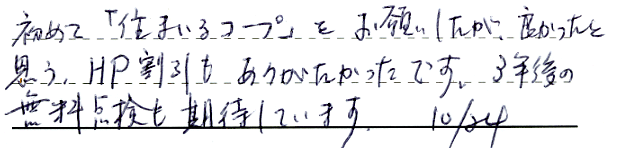 初めて「住まいるコープ」をお願いしたが、良かったと
思う。HP割引もありがたかったです。3年後の
無料点検も期待しています。 10/24